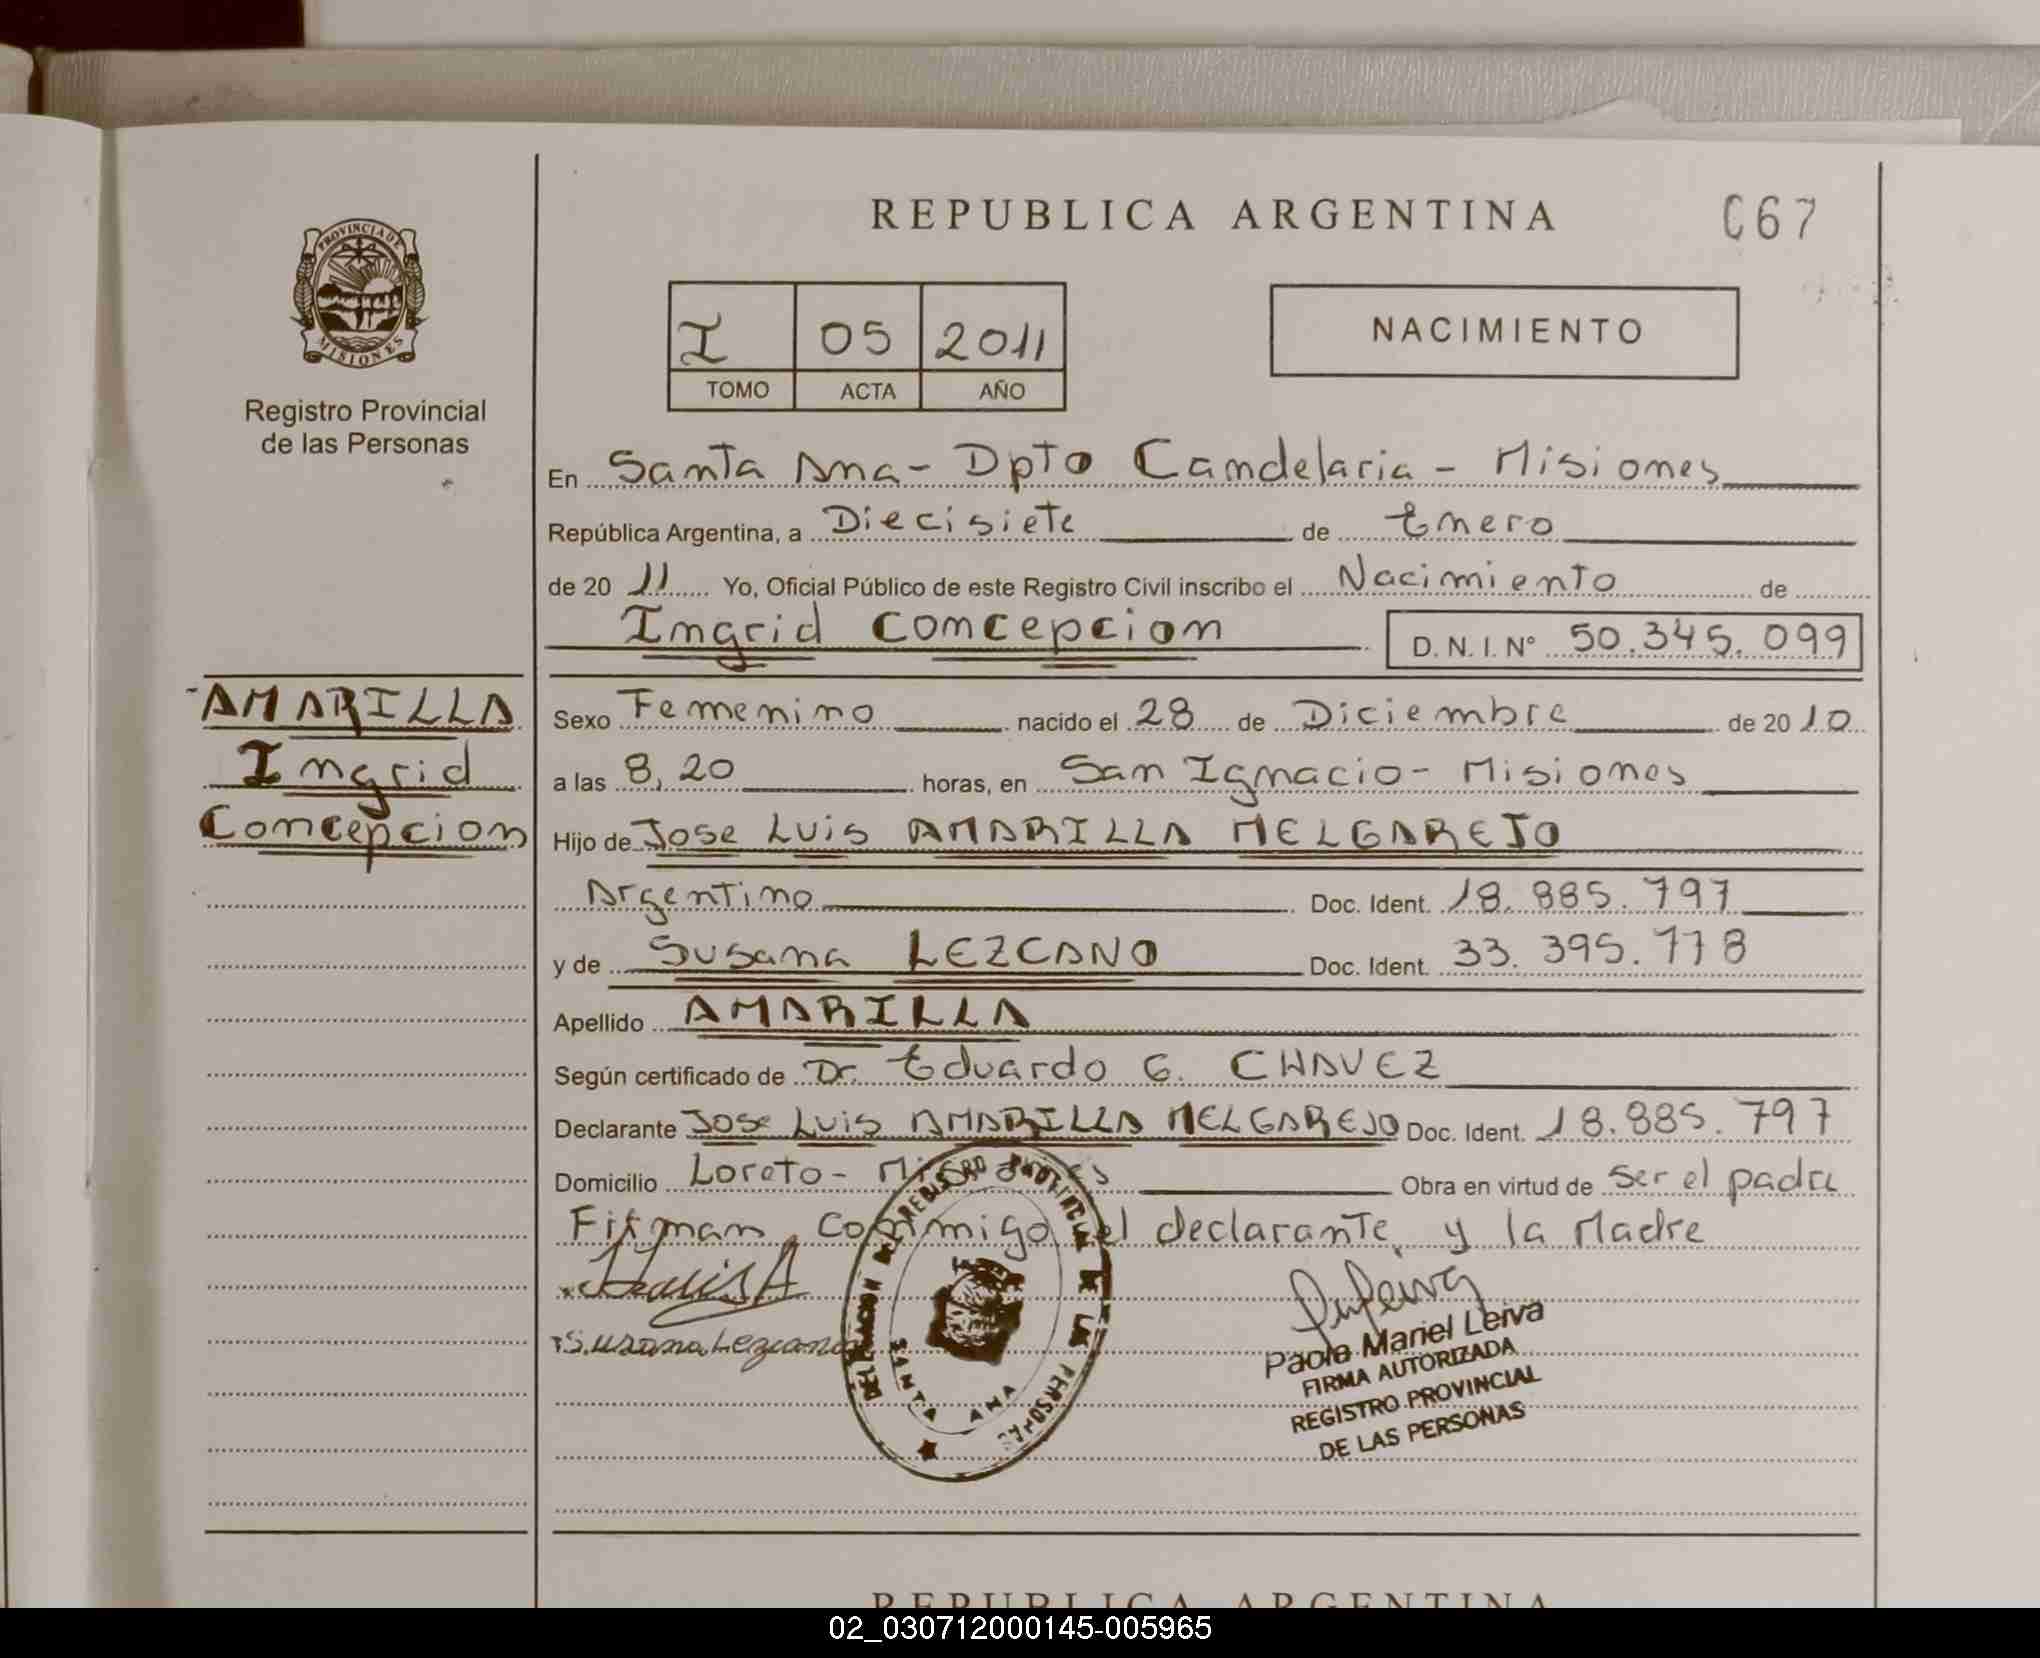 REPUBLICA ARGENTINA
C67
PROVINCIA DE
MISIONES
Registro Provincial
de las Personas
I 05 2011
TOMO ACTA AÑO
NACIMIENTO
En Santa Ana - Dpto Candelaria - Misiones
República Argentina, a Diecisiete de Enero
de 20 11 Yo, Oficial Público de este Registro Civil inscribo el Nacimiento de
Ingrid Concepcion D. N. I. N° 50.345.099
AMARILLA
Ingrid
Concepcion
Sexo Femenino nacido el 28 de Diciembre de 20 10
a las 8,20 horas, en San Ignacio - Misiones
Hijo de Jose Luis AMARILLA MELGAREJO
Argentino Doc. Ident. 18.885.797
y de Susana LEZCANO Doc. Ident. 33.395.778
Apellido AMARILLA
Según certificado de Dr. Eduardo G. CHAVEZ
Declarante Jose Luis AMARILLA MELGAREJO Doc. Ident. 18.885.797
Domicilio Loreto - Misiones Obra en virtud de ser el padre
Firman conmigo el declarante y la Madre
Susana Lezcano
DELEGACION DEL REGISTRO PROVINCIAL DE LAS PERSONAS
SANTA ANA
Paola Mariel Leiva
FIRMA AUTORIZADA
REGISTRO PROVINCIAL
DE LAS PERSONAS
REPUBLICA ARGENTINA
02_030712000145-005965